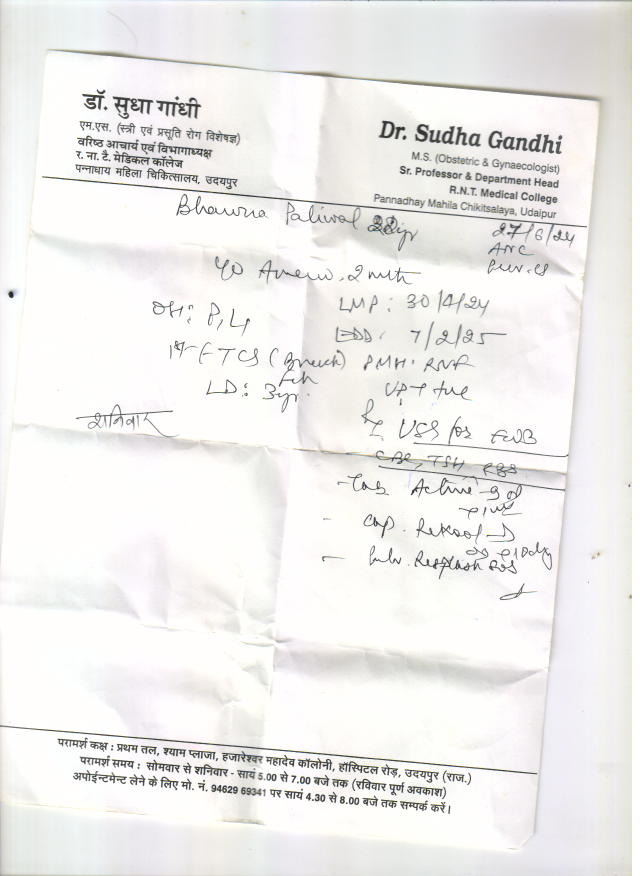 डॉ. सुधा गांधी
एम.एस. (स्त्री एवं प्रसूति रोग विशेषज्ञ)
वरिष्ठ आचार्य एवं विभागाध्यक्ष
र. ना. टै. मेडिकल कॉलेज
पन्नाधाय महिला चिकित्सालय, उदयपुर
Dr. Sudha Gandhi
M.S. (Obstetric & Gynaecologist)
Sr. Professor & Department Head
R.N.T. Medical College
Pannadhay Mahila Chikitsalaya, Udaipur
Paliwal
27/6/24
ANC
2 mth
LMP: 30/4/24
OH: P1L1
EDD: 7/2/25
1st FTCS (Breech)
LD: 3yr.
UPT +ve
शनिवार
Rx USG for FWB
CBC, TSH, RBS
- Tab. Active
- cap. -D
SOS
परामर्श कक्ष : प्रथम तल, श्याम प्लाजा, हजारेश्वर महादेव कॉलोनी, हॉस्पिटल रोड़, उदयपुर (राज.)
परामर्श समय : सोमवार से शनिवार - सायं 5.00 से 7.00 बजे तक (रविवार पूर्ण अवकाश)
अपोईन्टमेन्ट लेने के लिए मो. नं. 94629 69341 पर सायं 4.30 से 8.00 बजे तक सम्पर्क करें।